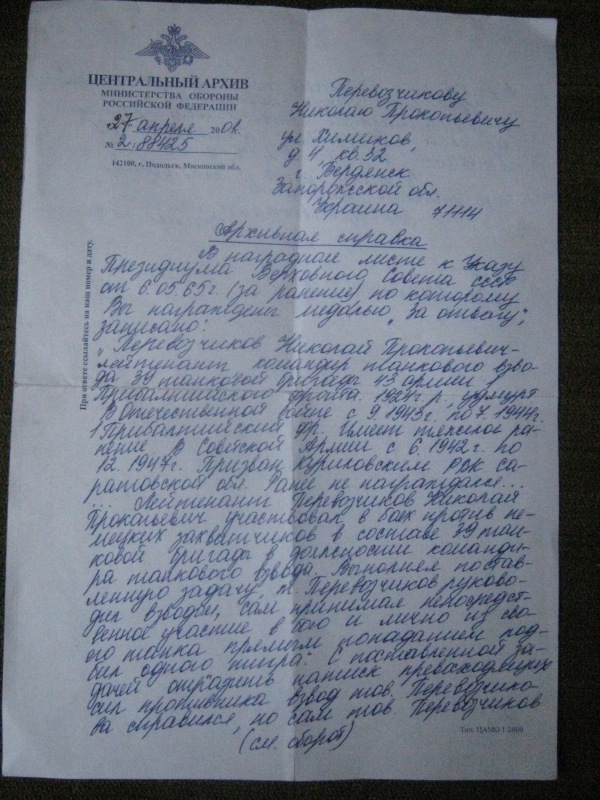 ЦЕНТРАЛЬНЫЙ АРХИВ
МИНИСТЕРСТВА ОБОРОНЫ
РОССИЙСКОЙ ФЕДЕРАЦИИ
"27" апреля 200
№ 2/88425
142100, г. Подольск, Московской обл.
При ответе ссылайтесь на наш номер и дату.
Перевозчикову
Николаю Прокопьевичу
ул. Химиков,
д 4 кв. 32
г. Бердянск
Запорожской обл.
Украина 71114
Архивная справка
В наградном листе к Указу
Президиума Верховного Совета СССР
от 6.05.65 г. (за ранение) по которому
Вы награждены медалью „За отвагу",
записано:
„Перевозчиков Николай Прокопьевич-
лейтенант командир танкового взво-
да 39 танковой бригады 43 армии 1
Прибалтийского фронта. 1924 г.р., удмурт
В Отечественной войне с 9.1943г. по 7.1944г,
1 Прибалтийский фр. Имеет тяжелое ра-
нение. В Советской Армии с 6.1942 г. по
12.1947г. Призван РВК Са-
ратовской обл. Ранее не награждался...
... Лейтенант Перевозчиков Николай
Прокопьевич участвовал в боях против не-
мецких захватчиков в составе 39 тан-
ковой бригады в должности команди-
ра танкового взвода. Выполняя постав-
ленную задачу, т. Перевозчиков руково-
дил взводом, сам принимал непосредст-
венное участие в бою и лично из сво-
его танка прямым попаданием под-
бил одного тигра. С поставленной за-
дачей отразить натиск превосходящих
сил противника взвод тов. Перевозчико-
ва справился, но сам тов. Перевозчиков
(см. оборот)
Тип. ЦАМО 1-2000